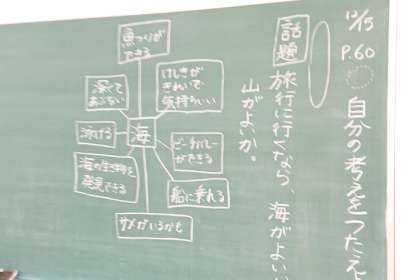 12/5
P.60
自分の考えをつたえ
話題
旅行に行くなら、海がよい
山がよいか。
海
魚つりが
できる
けしきが
きれいで
気持ちいい
ビーチバレー
ができる
船に乗れる
サメがいるかも
海の生き物を
発見できる
泳げる
深くて
あぶない